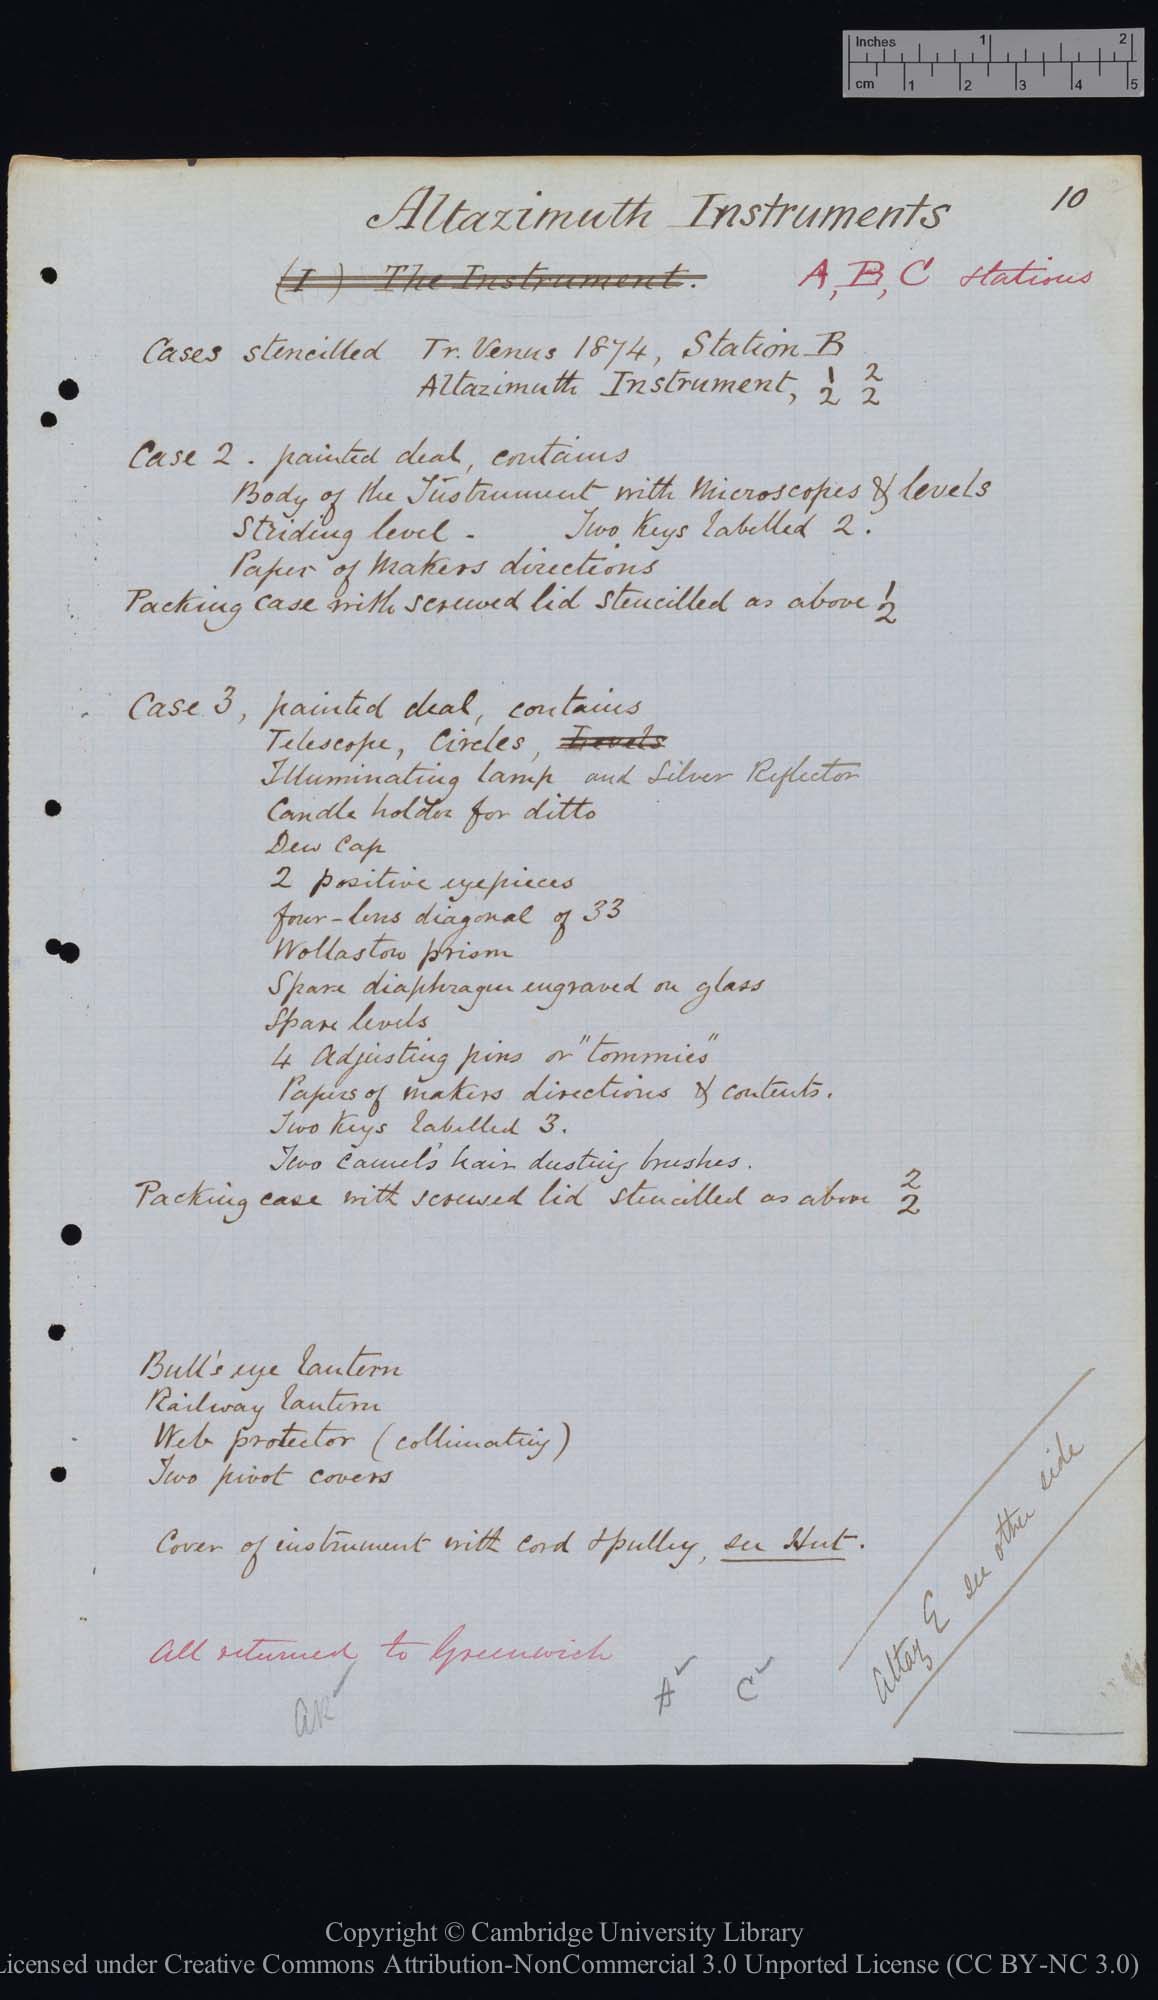 Inches 1 2
cm 1 2 3 4 5
10
Altazimuth Instruments
(I) The Instrument.
A, B, C stations
Cases stencilled Tr. Venus 1874, Station B
Altazimuth Instrument, 1/2 2/2
Case 2. painted deal, contains
Body of the Instrument with Microscopes & levels
Striding level - Two Keys labelled 2.
Paper of Makers directions
Packing case with screwed lid stencilled as above 1/2
Case 3, painted deal, contains
Telescope, Circles, Levels
Illuminating lamp and Silver Reflector
Candle holder for ditto
Dew Cap
2 positive eyepieces
four-lens diagonal of 33
Wollaston prism
Spare diaphragm engraved on glass
Spare levels
4 Adjusting pins or "tommies"
Papers of makers directions & contents.
Two Keys labelled 3.
Two camel's hair dusting brushes.
Packing case with screwed lid stencilled as above 2/2
Bull's eye lantern
Railway lantern
Web protector (collimating)
Two pivot covers
Cover of instrument with cord & pulley, see Hut.
Altaz E see other side
All returned to Greenwich
A C
Copyright © Cambridge University Library
Licensed under Creative Commons Attribution-NonCommercial 3.0 Unported License (CC BY-NC 3.0)